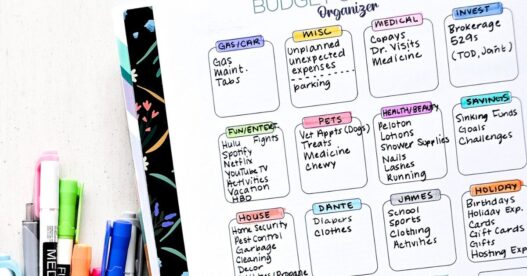 BUDGET
Organizer
GAS/CAR
Gas
Maint.
Tabs
MISC
Unplanned
unexpected
expenses
parking
MEDICAL
Copays
Dr. Visits
Medicine
INVEST
Brokerage
529s
(TOD, Joint)
FUN/ENTERT.
Hulu Fights
Spotify
Netflix
YouTube TV
Activities
Vacation
HBO
PETS
Vet Appts (Dogs)
Treats
Medicine
Chewy
HEALTH/BEAUTY
Peloton
Lotions
Shower Supplies
Nails
Lashes
Running
SAVINGS
Sinking Funds
Goals
Challenges
HOUSE
Home Security
Pest Control
Garbage
Cleaning
Decor
DANTE
Diapers
Clothes
JAMES
School
Sports
Clothing
Activities
HOLIDAY
Birthdays
Holiday Exp.
Cards
Gift Cards
Gifts
Hosting Exp